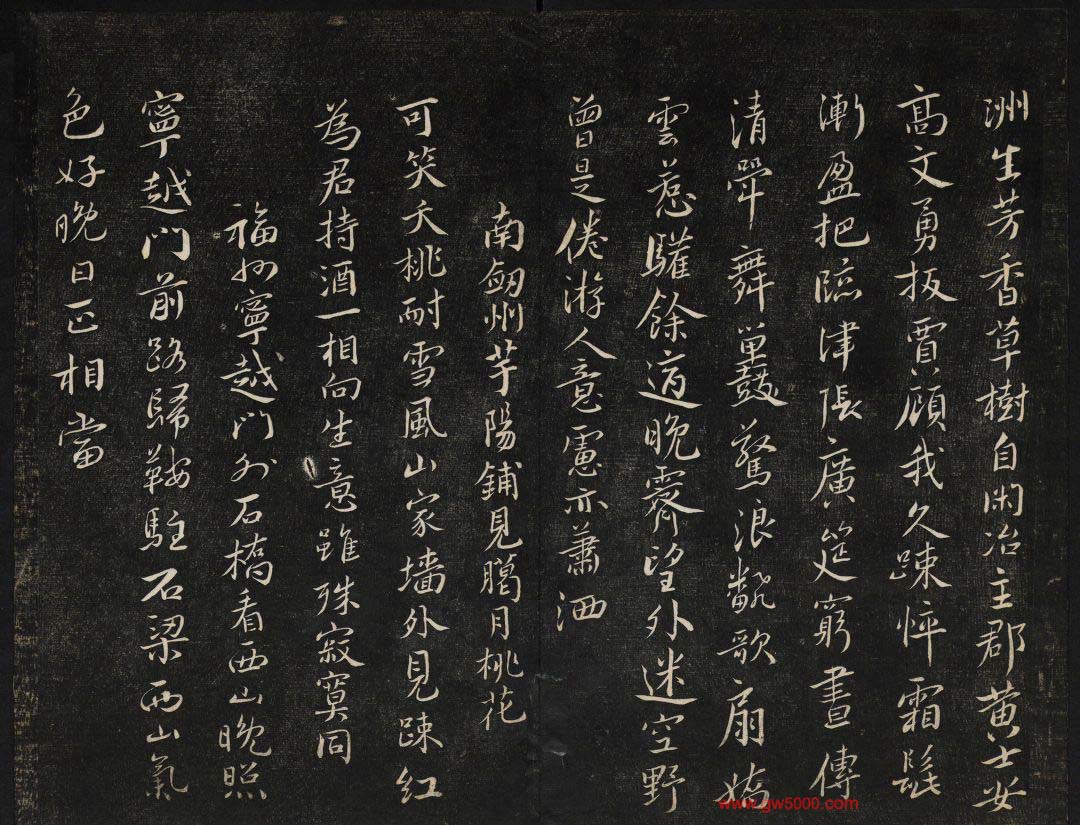 洲生芳香草樹自閑冶主郡黃士安
高文勇扳賈顧我久疎悴霜髭
漸盈把臨津張廣筵窮晝傳
清斝舞鼉驚浪翻歌扇嬌
雲惹驩餘適晚霽望外迷空野
曾是倦游人意慮亦蕭洒
南劔州芋陽鋪見臘月桃花
可笑夭桃耐雪風山家墻外見疎紅
為君持酒一相向生意雖殊寂寞同
福州寧越門外石橋看西山晚照
寧越門前路歸鞍駐石梁西山氣
色好晚日正相當
www.gw5000.com